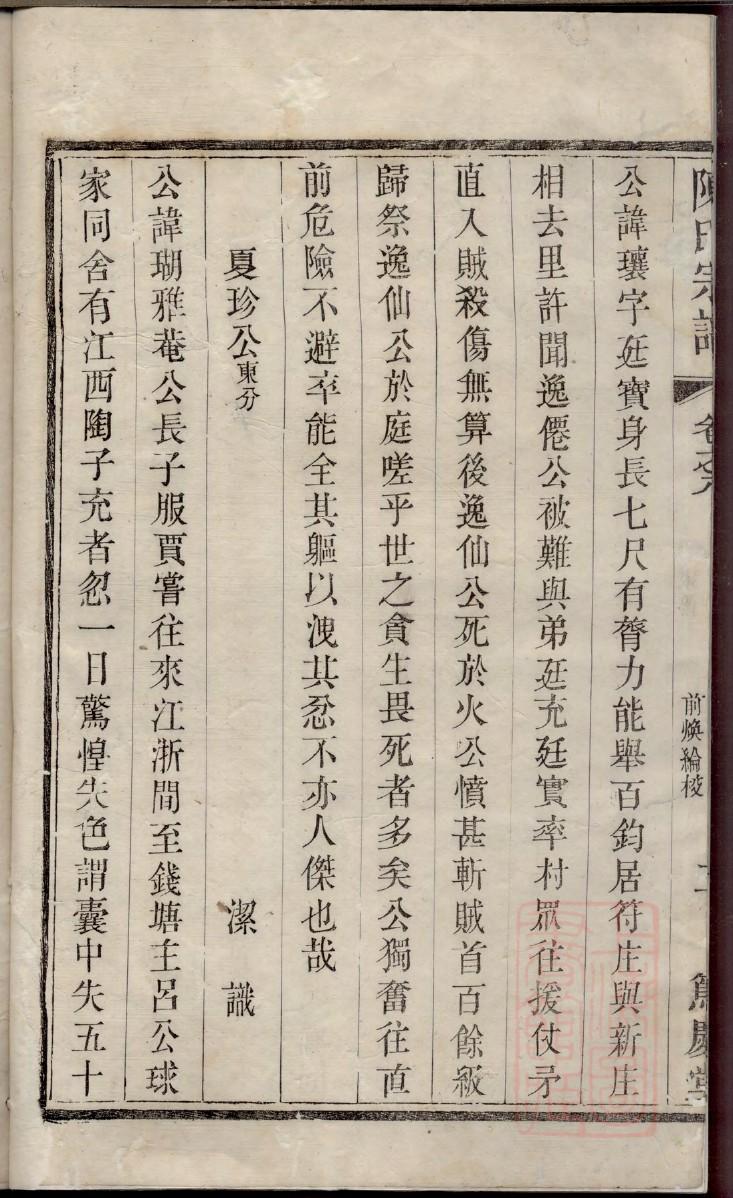 陳氏宗譜
前煥綸梭
篤慶堂
公諱瓖字廷寶身長七尺有膂力能舉百鈞居符庄與新庄
相去里許聞逸僊公被難與弟廷充廷實率村眾往援仗矛
直入賊殺傷無算後逸仙公死於火公憤甚斬賊首百餘級
歸祭逸仙公於庭嗟乎世之貪生畏死者多矣公獨奮往直
前危險不避卒能全其軀以洩其忿不亦人傑也哉
夏珍公東分 潔識
公諱瑚雅菴公長子服賈嘗往來江浙間至錢塘主呂公球
家同舍有江西陶子充者忽一日驚惶失色謂囊中失五十